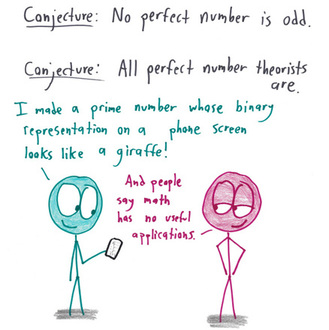 Conjecture: No perfect number is odd.
Conjecture: All perfect number theorists
are.
I made a prime number whose binary
representation on a phone screen
looks like a giraffe!
And people
say math
has no useful
applications.